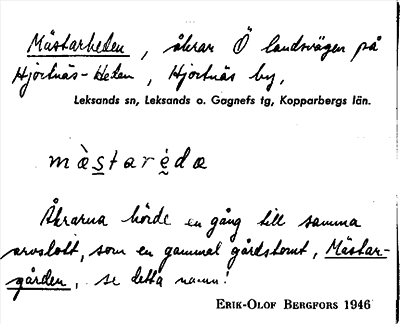 Mästarheden, åkrar Ö landsvägen på
Hjortnäs-Heden, Hjortnäs by,
Leksands sn, Leksands o. Gagnefs tg, Kopparbergs län.
màs̲tarèdα
Åkrarna hörde en gång till samma
arvslott, som en gammal gårdstomt, Mästar-
gården, se detta namn!
ERIK-OLOF BERGFORS 1946